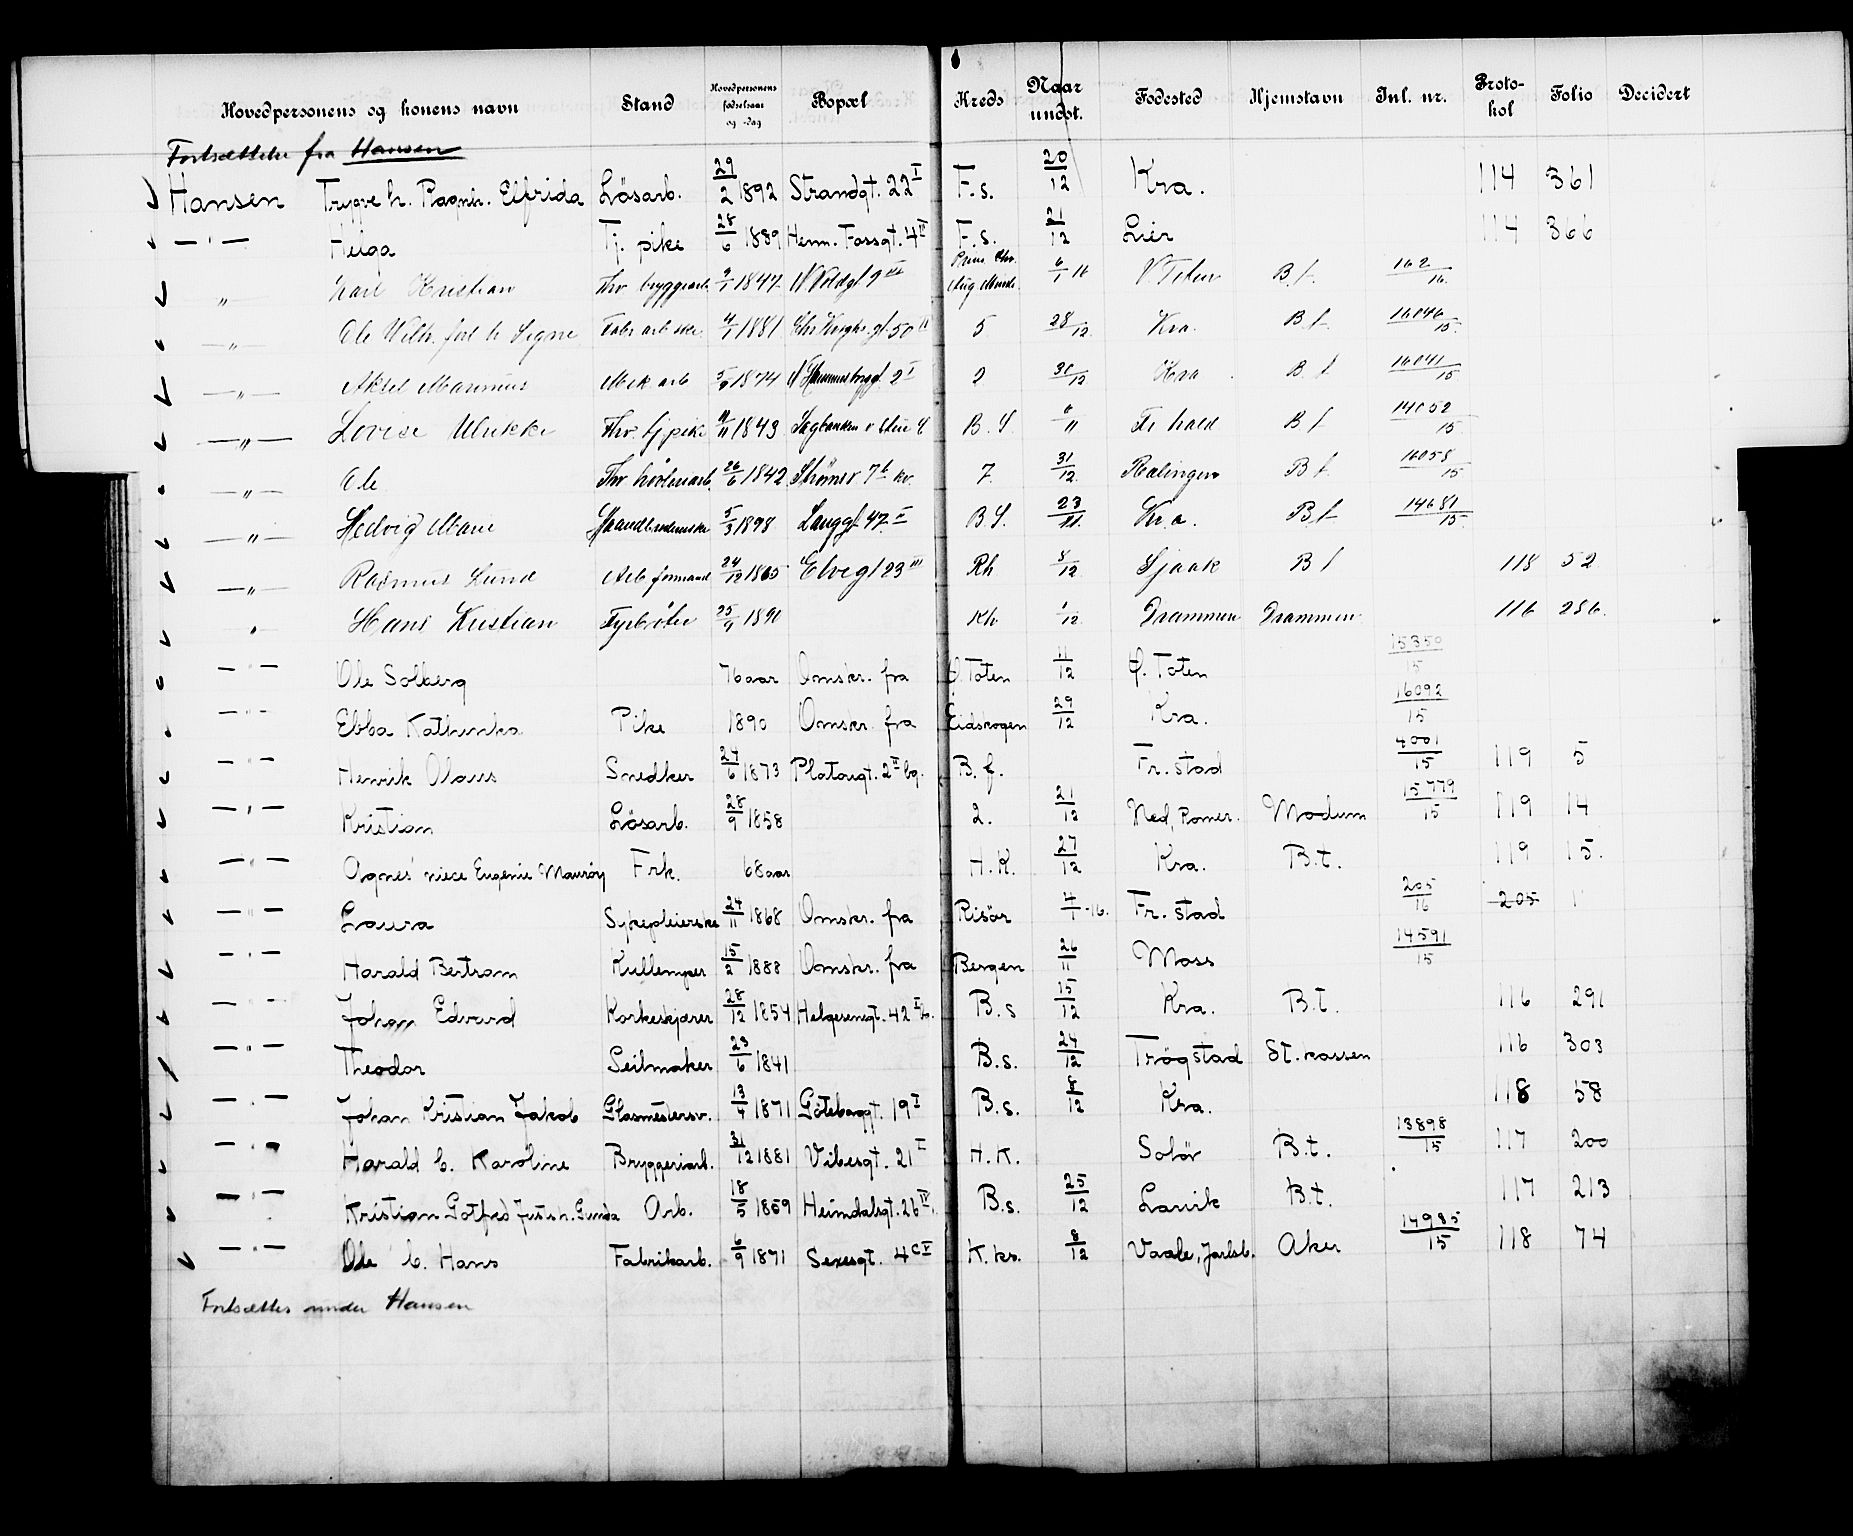 Hovedpersonens og konens navn Stand Hovedpersonens fødselsaar og -dag Bopæl Kreds Naar undst. Fødested Hjemstavn Inl. nr. Protokol Folio Decidert
Fortsættelse fra Hansen
Hansen Trygve h. Ragnh. Elfrida Løsarb. 29/2 1892 Strandgt. 22 I F.s. 20/12 Kra. 114 361
— " — Helga Tj. pike 28/6 1889 Herm. Fossgt. 4 II F.s. 21/12 Lier 114 366
" Karl Kristian Fhv bryggearb. 1847 N Voldgt 9 III Prins Chr. Aug Minde 6/1 16 V. Toten B.t. 162/16
— " — Ole Wilh. Signe Fabr arb ske 4/1 1881 50 II 5 28/12 Kra. B.t. 16046/15
— " — Aksel Marinus Mek arb 1874 2 I 2 30/12 Kra B.t. 16041/15
— " — Lovise Ulrikke Fhv. tj pike 11/11 1843 B.S. 6/11 Fr hald B.t 14052/15
— " — Ole Fhv 26/6 1842 Strømsv 7 b kv. 7 31/12 Rælingen B t 16058/15
— " — Hedvig Marie 5/3 1898 Langgt 47 I B.S. 23/11 Kra. B.t 14681/15
— " — Rasmus Lund Arb formand 24/12 1865 Elvegt 23 III Rh 8/12 Sjaak B t 118 52
" Hans Kristian Fyrbøter 25/9 1890 Rh 1/12 Drammen Drammen 116 286.
— " — Ole Solberg 76 aar Omskr. fra Ø. Toten 11/12 Ø. Toten 15350/15
— " — Ebba Kathinka Pike 1890 Omskr. fra Eidskogen 29/12 Kra. 16092/15
— " — Henrik Olaus Snedker 24/6 1873 Platougt. 2 II bg. B.f. Fr.stad 4001/15 119 5
— " — Kristian Løsarb. 28/9 1858 2. 21/12 Ned, Romer. Modum 15779/15 119 14
— " — Agnes' niece Eugenie Maurøy Frk. 68 aar H.K. 27/12 Kra. B.t. 119 15.
— " — Laura Sykepleierske 24/11 1868 Omskr. fra Risør 4/1 -16. Fr. stad 205/16 205
— " — Harald Bertram Kullemper 15/2 1888 Omskr. fra Bergen 26/11 Moss 14591/15
— " — Johan Edvard Korkeskjærer 28/12 1854 Helgesensgt. 42 I b. B.s 15/12 Kra. B.t. 116 291
— " — Theodor Seilmaker 23/6 1841 B.s. 24/12 Trøgstad St. kassen 116 303
— " — Johan Kristian Jakob Glasmestersv. 13/4 1871 Göteborggt. 19 I B.s. 8/12 Kra. 118 58
— " — Harald h. Karoline Bryggeriarb. 31/12 1881 Vibesgt. 21 I H.K. Solør B.t. 13898/15 117 200
— " — Kristian Gotfred h. Gunda Arb. 18/5 1859 Heimdalsgt. 26 IV. B.s. 25/12 Larvik B.t. 117 213
— " — Ole h. Hans Fabrikarb. 6/9 1871 Sexesgt. 4 c V K.ks. 8/12 Vaale, Jarlsb. Aker 14985/15 118 74
Fortsættes under Hansen